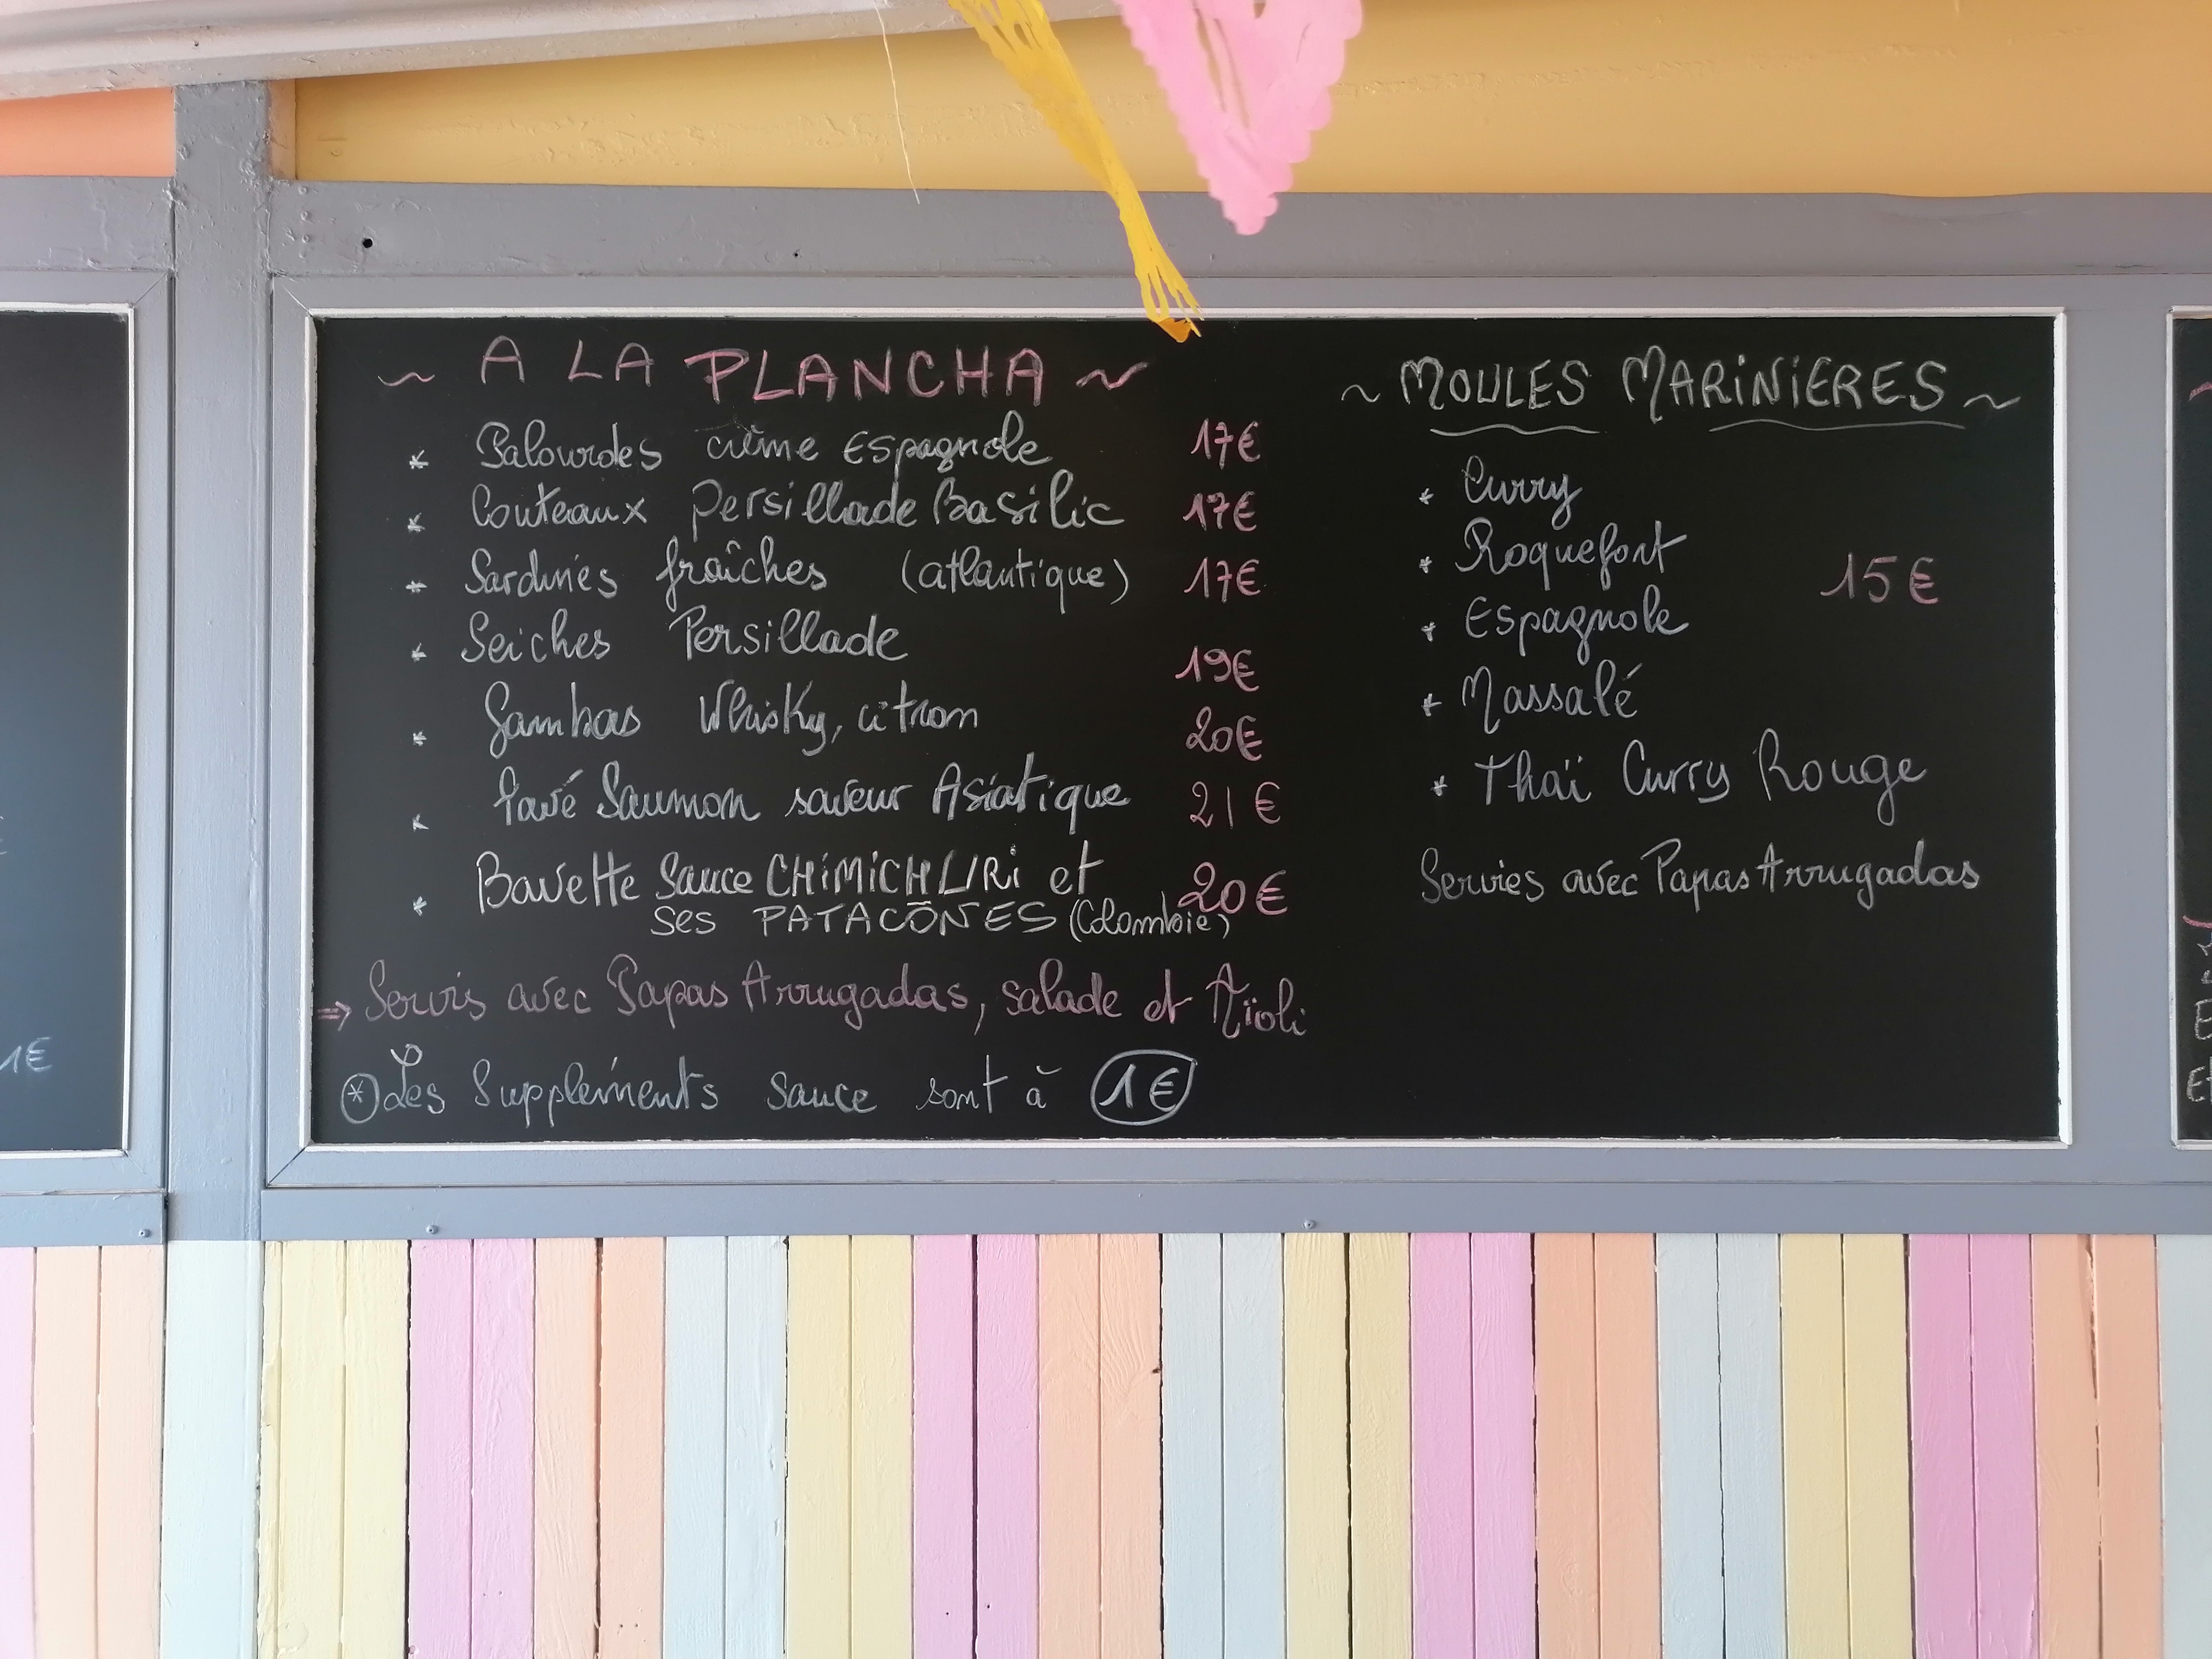 ~ A LA PLANCHA ~
* Palourdes crème Espagnole 17€
* Couteaux Persillade Basilic 17€
* Sardines fraîches (atlantique) 17€
* Seiches Persillade 19€
* Gambas Whisky, citron 20€
* Pavé Saumon saveur Asiatique 21€
* Bavette Sauce CHiMiCHURi et 20€
ses PATACONES (Colombie)
⇒ Servis avec Papas Arrugadas, salade et Aïoli
* Les Suppléments sauce sont à 1€
~ MOULES MARiNiERES ~
* Curry
* Roquefort
15€
* Espagnole
* Massalé
* Thaï Curry Rouge
Servies avec Papas Arrugadas
1€